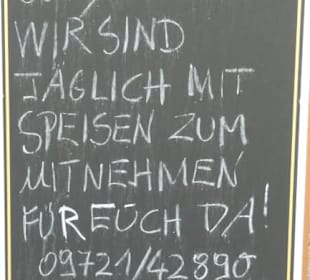 WIR SIND
TÄGLICH MIT
SPEISEN ZUM
MITNEHMEN
FÜR EUCH DA!
09721/42890